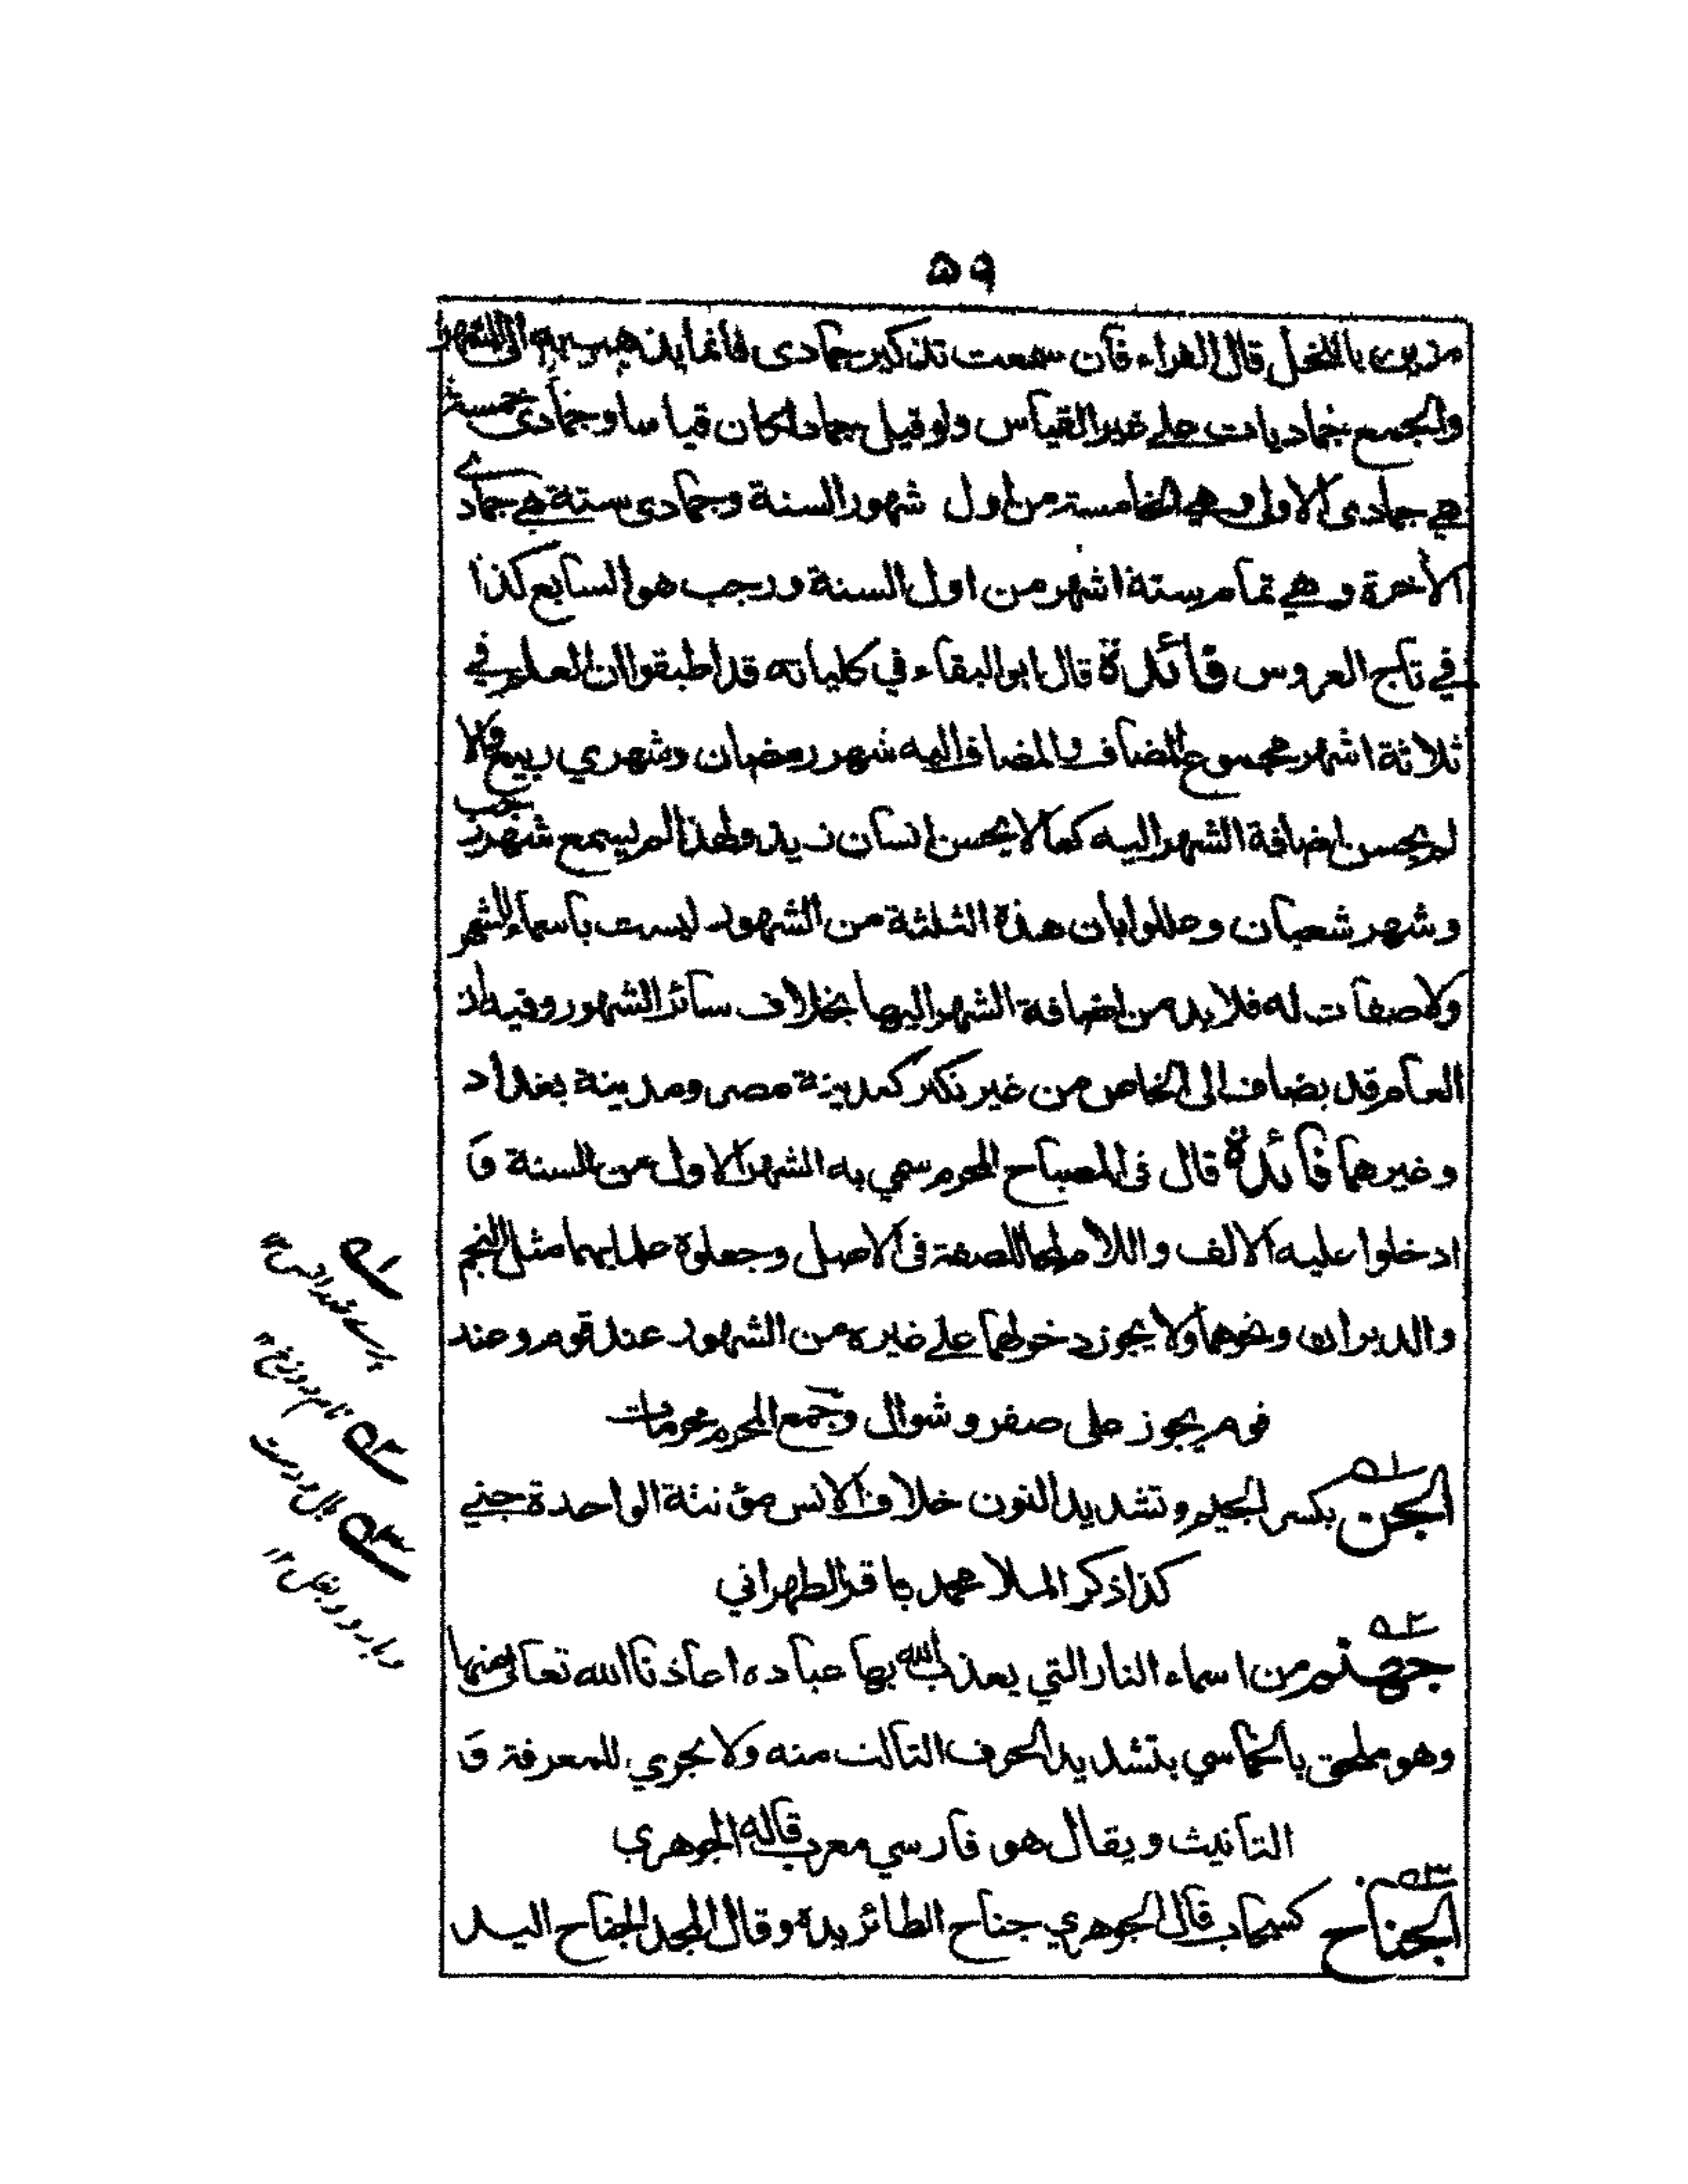 ٥٩
مزين بالنخل قال الفراء فان سمعت تذكير جمادى فانما يذهب به الى الشهر
والجمع جماديات على غير القياس ولو قيل جماد لكان قياسا وجمادى خمسة
هي جمادى الاولى وهي الخامسة من اول شهور السنة وجمادى ستة هي جمادے
الآخرة وهي تمام ستة اشهر من اول السنة ورجب هو السابع كذا
في تاج العروس فائدة قال ابو البقاء في كلياته قد اطبقوا ان العلم في
ثلاثة اشهر مجموع المضاف والمضاف اليه شهر رمضان وشهري ربيع والا
لم يحسن اضافة الشهر اليه كما لا يحسن انسان زيد ولهذا لم يسمع شهر رجب
وشهر شعبان وعللوا بان هذه الثلثة من الشهور ليست باسماء للشهر
ولا صفات له فلا بد من اضافة الشهر اليها بخلاف سائر الشهور وفيه ان
العام قد يضاف الى الخاص من غير نكر كمدينة مصر ومدينة بغداد
وغيرهما فائدة قال في المصباح المحرم سمي به الشهر الاول من السنة و
ادخلوا عليه الالف واللام لمحا للصفة في الاصل وجعلوه علما بهما مثل النجم
والدبران ونحوهما ولا يجوز دخولهما على غيره من الشهور عند قوم وعند
قوم يجوز على صفر وشوال وجمع المحرم محرمات
الجن بكسر الجيم وتشديد النون خلاف الانس مؤنثة الواحدة جني
كذا ذكر الملا محمد باقر الطهراني
جهنم من اسماء النار التي يعذب الله بها عباده اعاذنا الله تعالى منها
وهو ملحق بالخماسي بتشديد الحرف الثالث منه ولا يجري للمعرفة و
التانيث ويقال هو فارسي معرب قاله الجوهري
الجناح كسحاب قال الجوهري جناح الطائر يده وقال المجد الجناح اليد